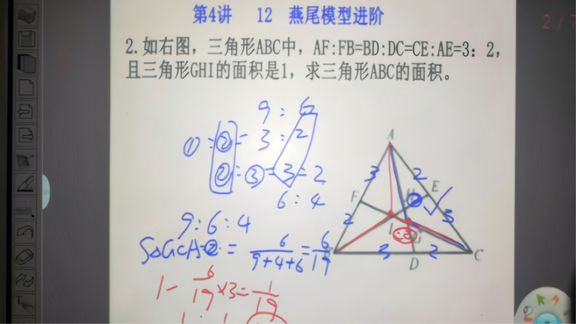 第4讲 12 燕尾模型进阶
2.如右图，三角形ABC中，AF:FB=BD:DC=CE:AE=3：2，
且三角形GHI的面积是1，求三角形ABC的面积。
9 : 6
① = ② = 3 : 2
② = ③ = 3 = 2
6 : 4
9 : 6 : 4
= 6/(9+4+6) = 6/19
1 - 6/19 ×3 = 1/19
A
3 2
F E
2 3
I
B 3 D 2 C